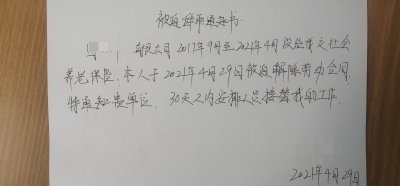 被迫辞职通知书
有限公司2017年9月至2021年4月没给我交社会
养老保险，本人于2021年4月29日被迫解除劳动合同，
特通知贵单位，30天之内安排人员接替我的工作．
2021年4月29日